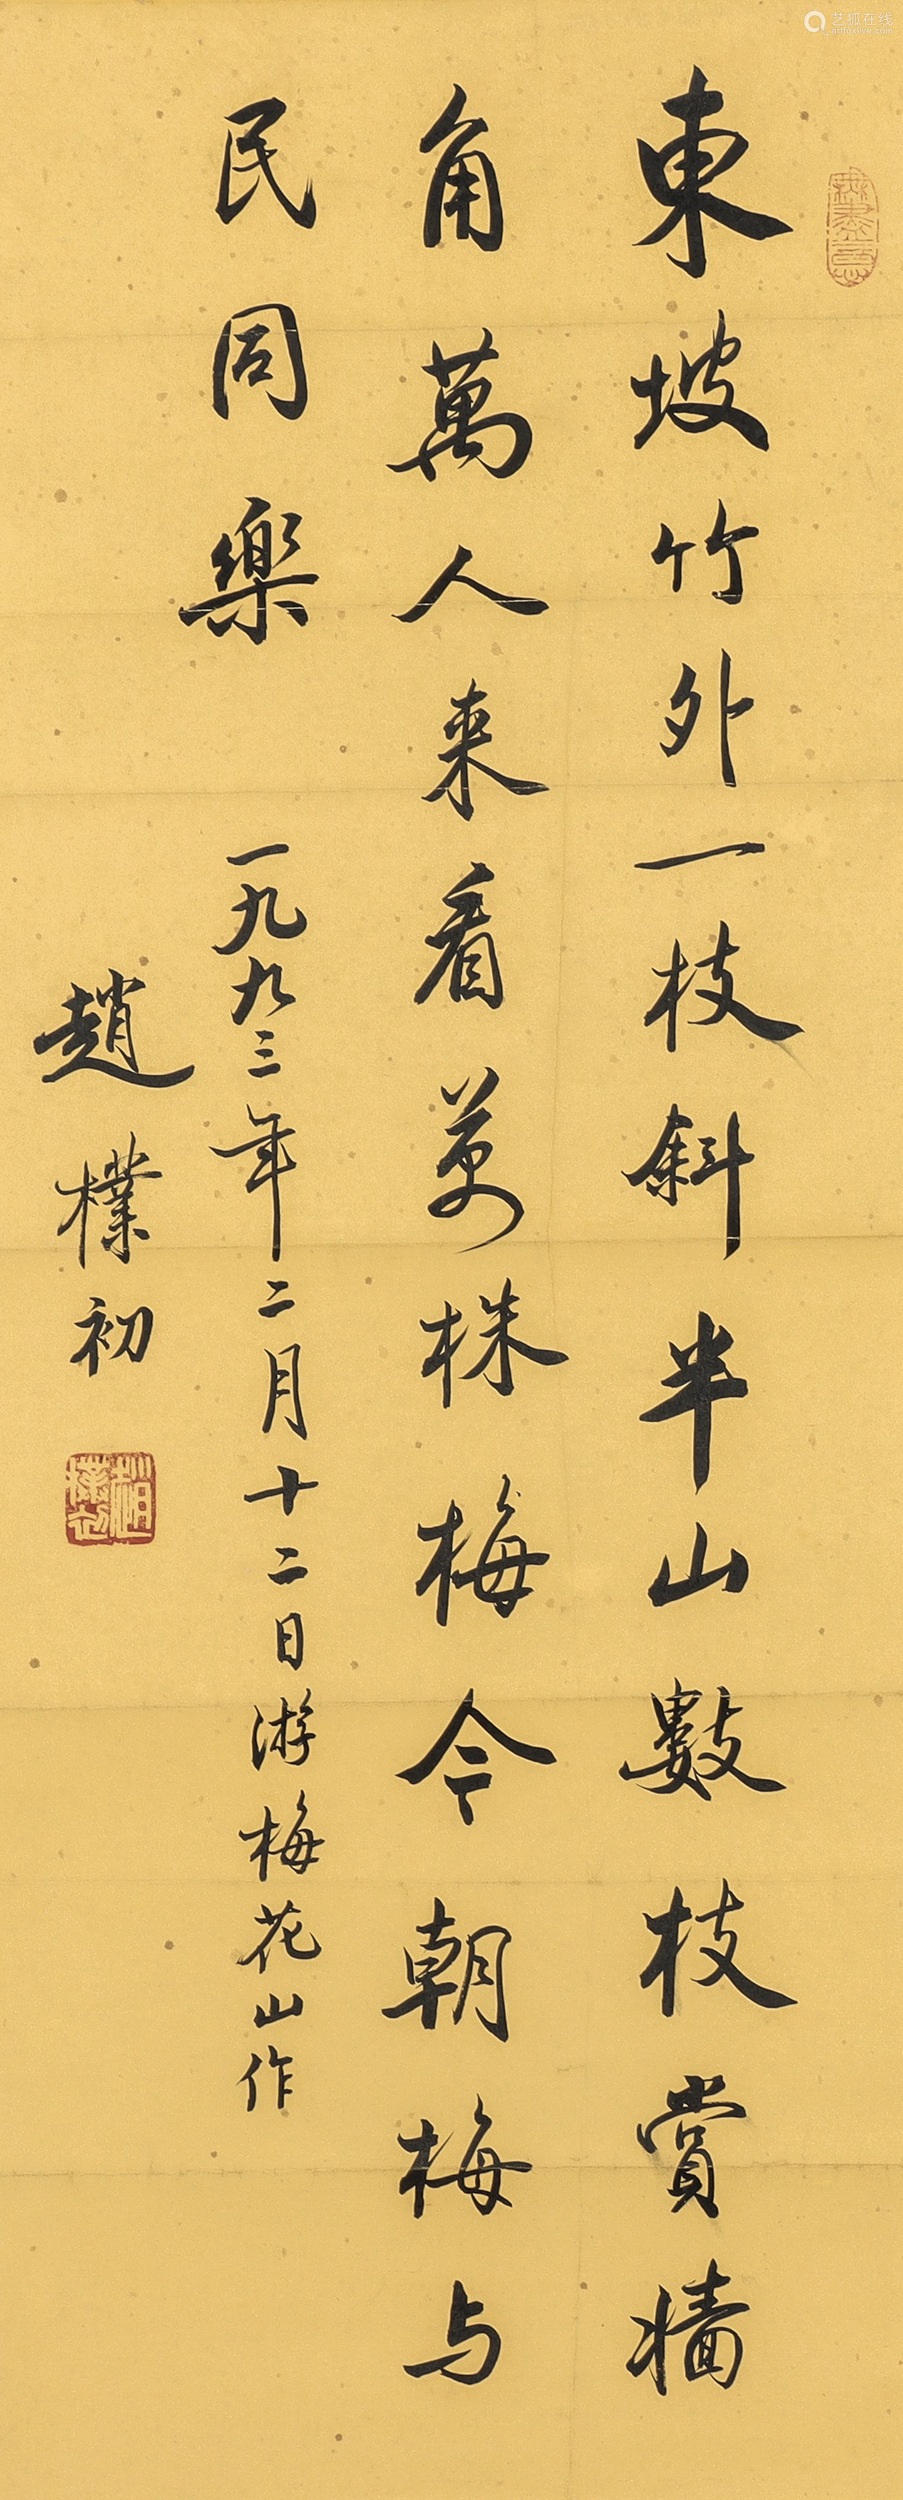 東坡竹外一枝斜半山數枝賞牆
角萬人来看万株梅今朝梅与
民同樂
一九九三年二月十二日游梅花山作
趙樸初
無盡意
趙樸初
艺狐在线
artfoxlive.com